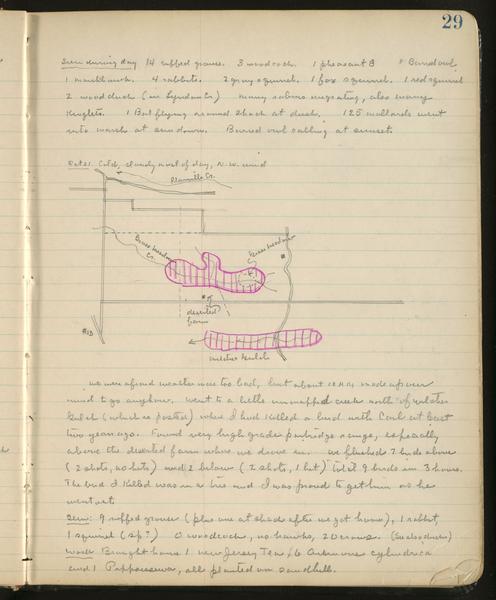 29
Seen during day 14 ruffed grouse. 3 woodcock. 1 pheasant 8 Barred owl.
1 marsh hawk. 4 rabbits. 2 gray squirrel. 1 fox squirrel. 1 red squirrel
2 wood duck (in Lyndon Cr) many robins migrating, also many
Kinglets. 1 Bat flying around shack at dusk. 125 mallards went
into marsh at sundown. Barred owl calling at sunset.
Oct 21. Cold, cloudy most of day, N.W. wind
Plainville Cr.
Beaver Meadow
Cr.
deserted
farm
#13
Gulch
we were afraid weather was too bad, but about 10 AM made up our
mind to go anyhow. went to a little unmapped creek north of
Gulch (which is posted) where I had killed a bird with Carl at least
two years ago. Found very high grade partridge range, especially
above the deserted farm where we drove in. we flushed 7 birds above
(2 shots, no hits) and 2 below (2 shots, 1 hit) total 9 birds in 3 hours.
The bird I killed was in a tree and I was proud to get him as he
went out.
Seen: 9 ruffed grouse (plus one at shack after we got home), 1 rabbit,
1 squirrel (sp?) 0 woodcock, no hawks, 20 crows.
Work Brought home 1 New Jersey Tea, 6
and 1 all planted on sandhill.